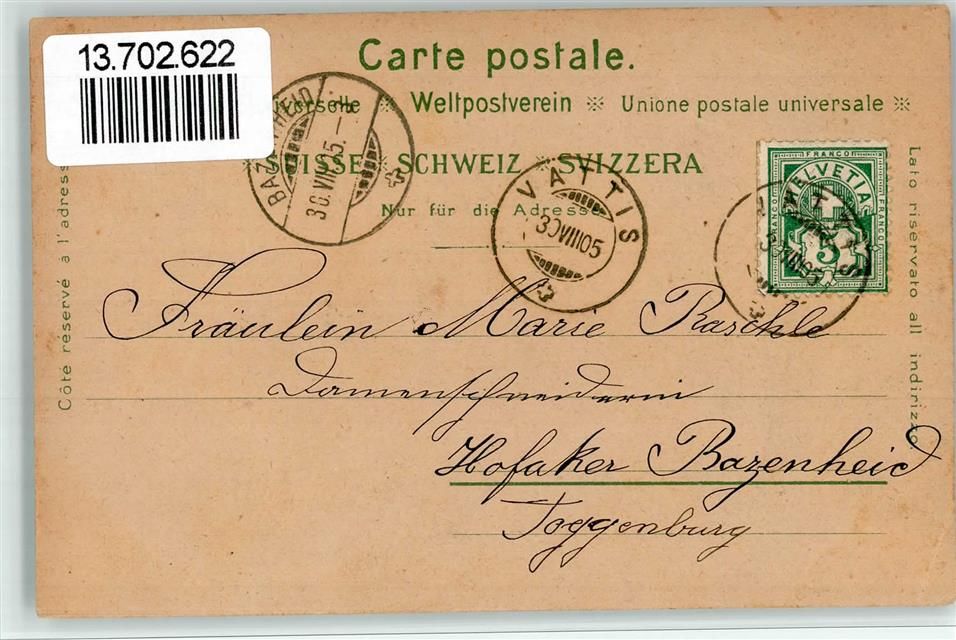 13.702.622
Carte postale.
verselle ※ Weltpostverein ※ Unione postale universale ※
SUISSE SCHWEIZ SVIZZERA
Nur für die Adresse
BAZENHEID
30.VIII.05.-3
VÄTTIS
30VIII05
VÄTTIS
30VIII05
FRANCO
HELVETIA
FRANCO
FRANCO
5
Côte réservé à l'adresse
Lato riservato all indirizzo
Fräulein Marie Raschle
Damenschneiderin
Hofaker Bazenheid
Toggenburg